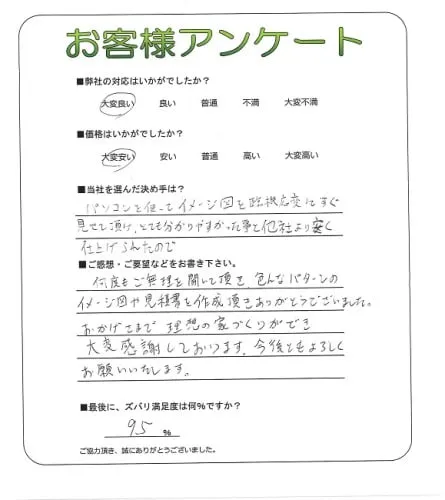 お客様アンケート
■弊社の対応はいかがでしたか？
大変良い 良い 普通 不満 大変不満
■価格はいかがでしたか？
大変安い 安い 普通 高い 大変高い
■当社を選んだ決め手は？
パソコンを使ってイメージ図を臨機応変にすぐ
見せて頂け、とても分かりやすかった事と他社より安く
仕上げられたので
■ご感想・ご要望などをお書き下さい。
何度もご無理を聞いて頂き、色んなパターンの
イメージ図や見積書を作成頂きありがとうございました。
おかげさまで 理想の家づくりができ
大変感謝しております。今後ともよろしく
お願いいたします。
■最後に、ズバリ満足度は何％ですか？
95 ％
ご協力頂き、誠にありがとうございました。